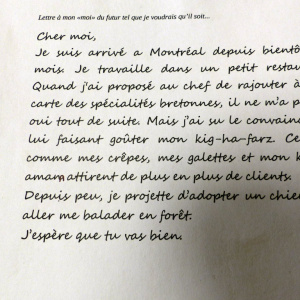 Lettre à mon «moi» du futur tel que je voudrais qu'il soit...
Cher moi,
Je suis arrivé à Montréal depuis bientô
mois. Je travaille dans un petit restau
Quand j'ai proposé au chef de rajouter à
carte des spécialités bretonnes, il ne m'a p
oui tout de suite. Mais j'ai su le convainc
lui faisant goûter mon kig-ha-farz. Ce
comme mes crêpes, mes galettes et mon k
amann attirent de plus en plus de clients.
Depuis peu, je projette d'adopter un chie
aller me balader en forêt.
J'espère que tu vas bien.